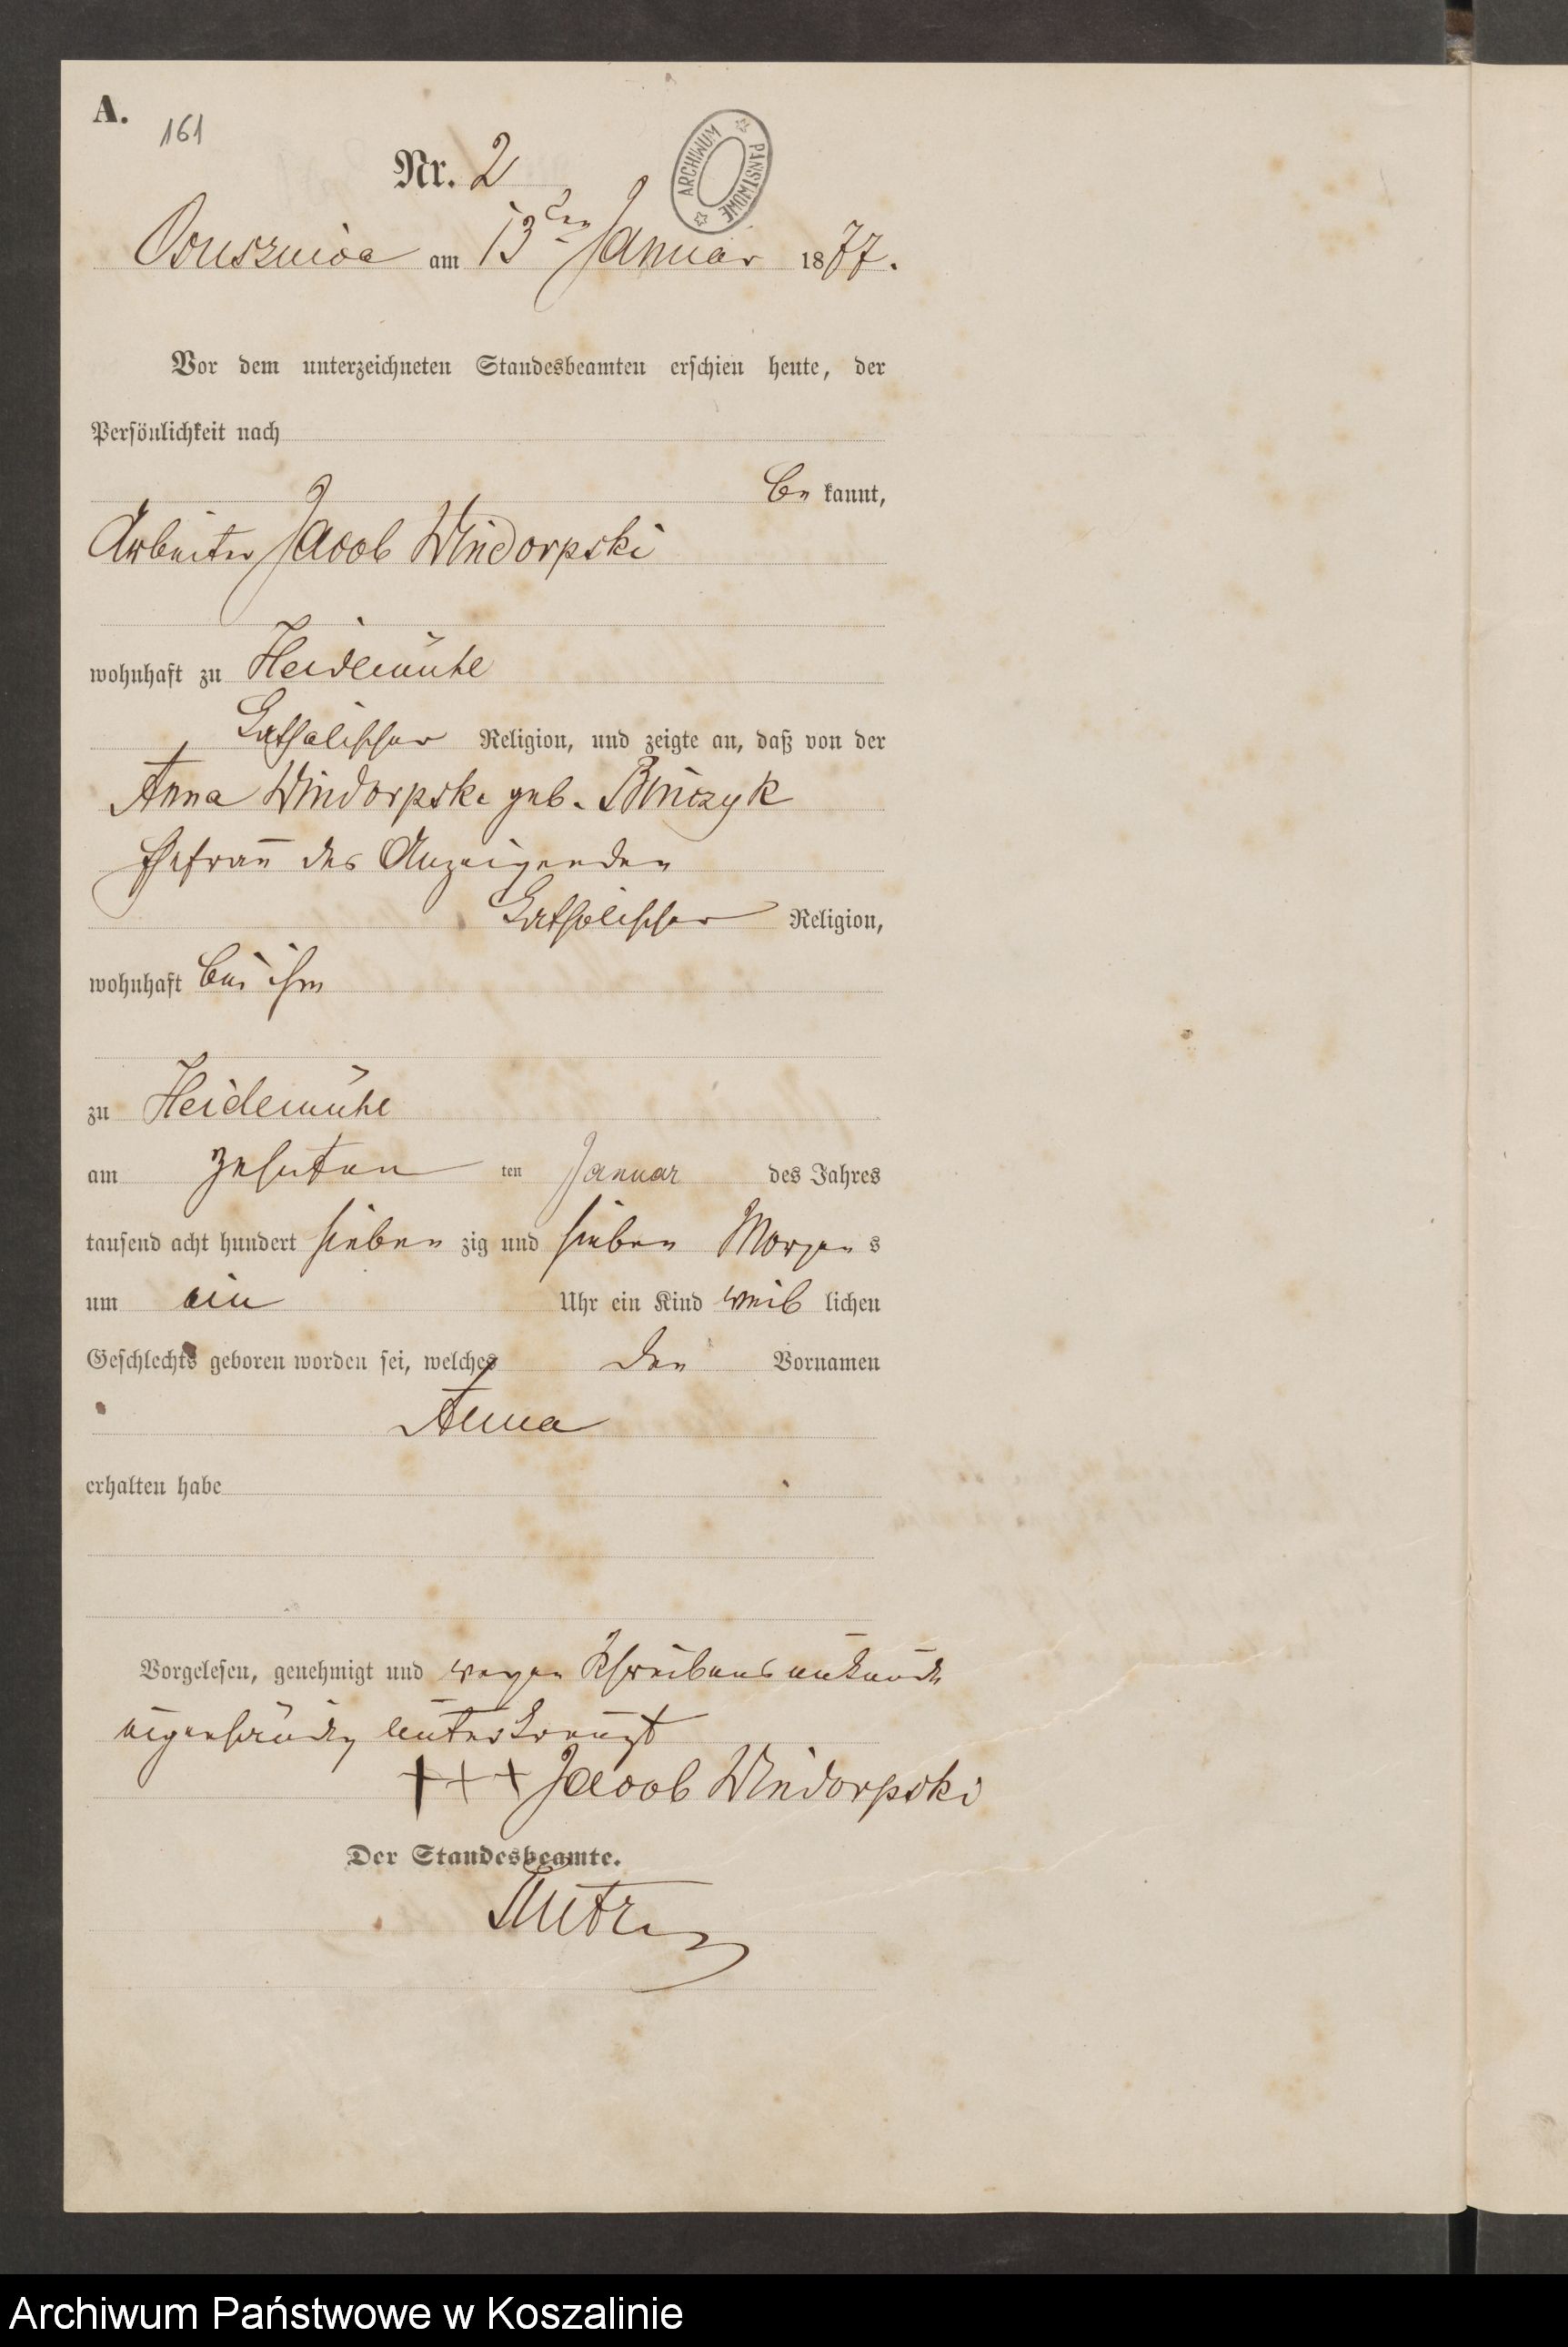 A.
161
Nr. 2
ARCHIWUM PAŃSTWOWE
Osusznica am 13ten Januar 1877.
Vor dem unterzeichneten Standesbeamten erschien heute, der
Persönlichkeit nach
be kannt,
Arbeiter Jacob Windorpski
wohnhaft zu Heidemühl
katholischer Religion, und zeigte an, daß von der
Anna Windorpski geb. Binczyk
Ehefrau des Anzeigenden
katholischer Religion,
wohnhaft bei ihm
zu Heidemühl
am zehnten ten Januar des Jahres
tausend acht hundert sieben zig und sieben Morgen s
um ein Uhr ein Kind weib lichen
Geschlechts geboren worden sei, welches den Vornamen
Anna
erhalten habe
Vorgelesen, genehmigt und wegen Schreibensunkunde
eigenhändig unterkreuzt
+++ Jacob Windorpski
Der Standesbeamte.
Archiwum Państwowe w Koszalinie